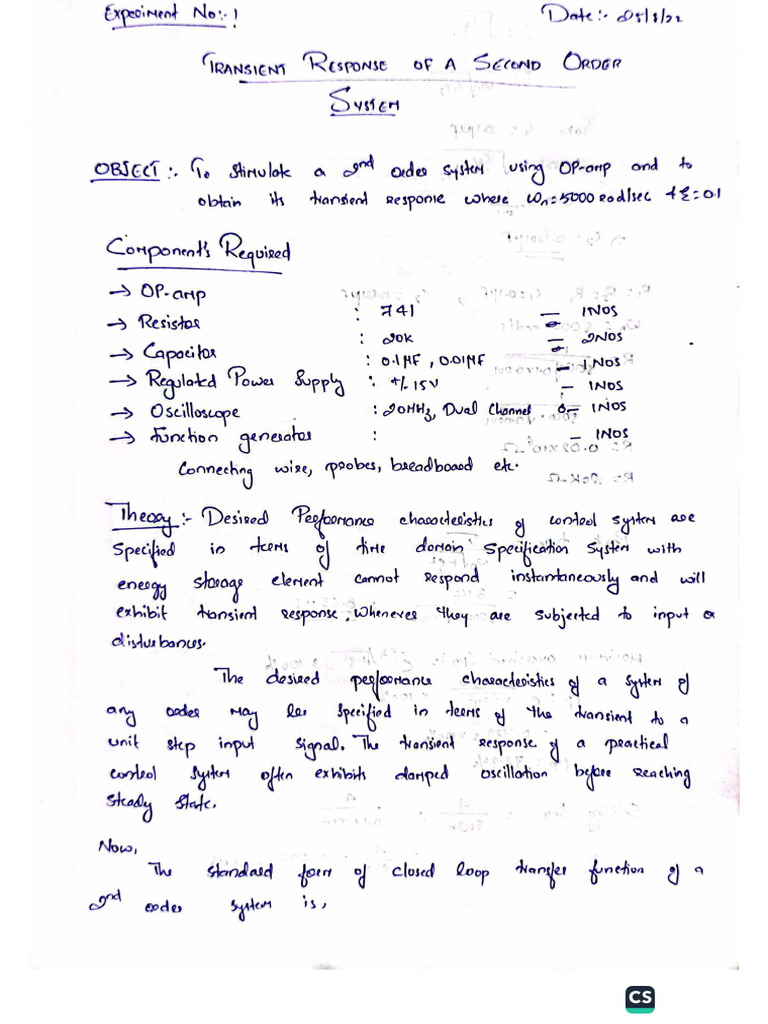 Experiment No:- 1 Date:- 25/8/22
TRANSIENT RESPONSE OF A SECOND ORDER
SYSTEM
OBJECT :- To stimulate a 2nd order system using OP-amp and to
obtain its transient Response where ωn=5000 rad/sec & ξ=0.1
Component's Required
→ OP-amp : 741 — 1NOS
→ Resistor : 20k — 2NOS
→ Capacitor : 0.1μF, 0.01μF — 1NOS
→ Regulated Power Supply : +/- 15V — 1NOS
→ Oscilloscope : 20MHz, Dual Channel — 1NOS
→ function generator : — 1NOS
Connecting wire, probes, breadboard etc.
Theory :- Desired Performance characteristics of control system are
specified in terms of time domain specification system with
energy storage element cannot respond instantaneously and will
exhibit transient response, whenever they are subjected to input or
disturbances.
The desired performance characteristics of a system of
any order may be specified in terms of the transient to a
unit step input signal. The transient response of a practical
control system often exhibits damped oscillation before reaching
steady state.
Now,
The standard form of closed loop transfer function of a
2nd order system is,
CS